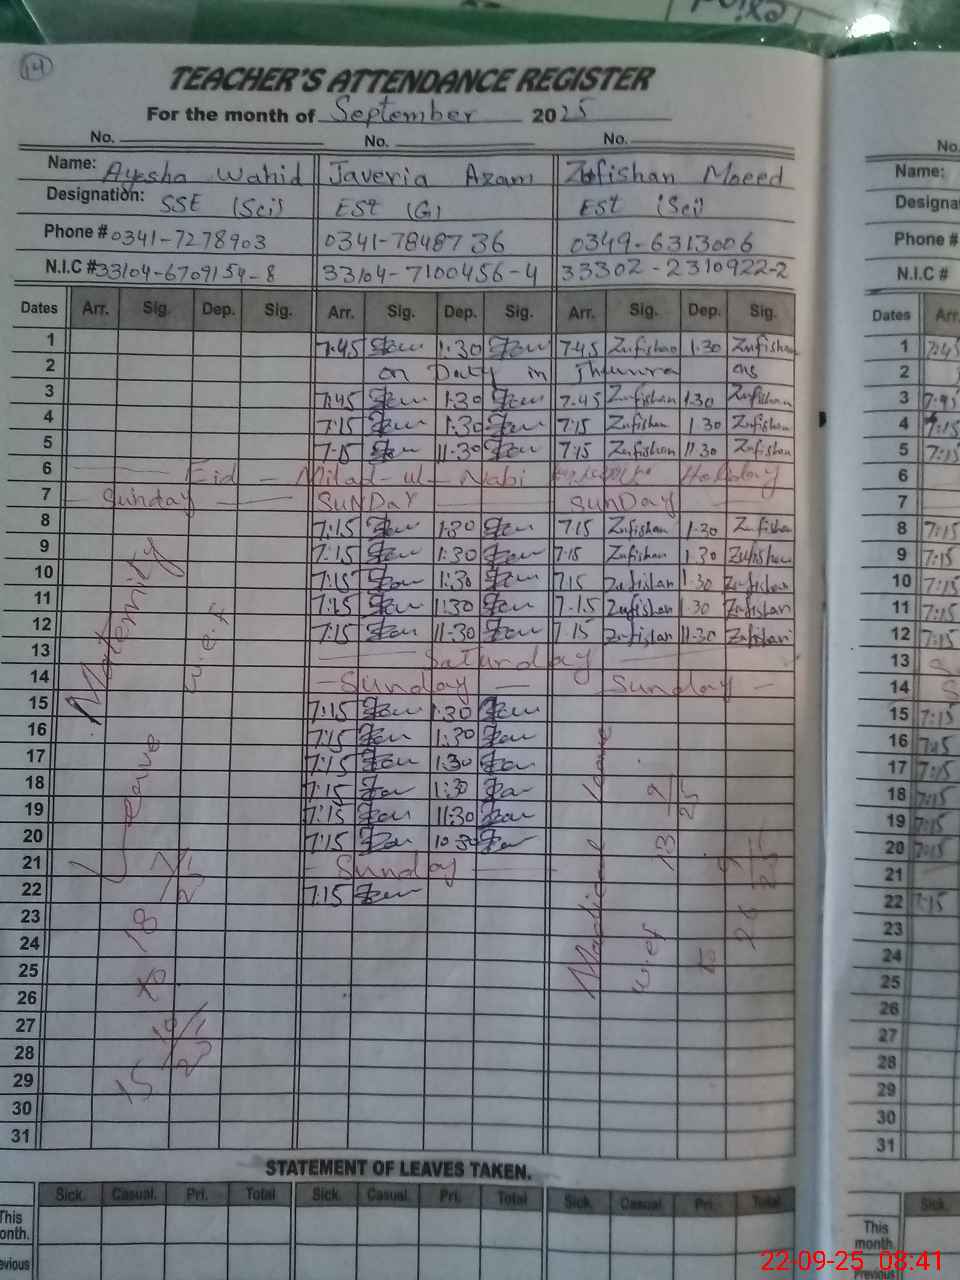 14
TEACHER'S ATTENDANCE REGISTER
For the month of September 2025
No. No. No.
Name: Ayesha Wahid Javeria Azam Zufishan Moeed
Designation: SSE (Sci) EST (G) EST (Sci)
Phone # 0341-7278903 0341-7848736 0349-6313006
N.I.C # 33104-6709154-8 33104-7100456-4 33302-2310922-2
Dates Arr. Sig. Dep. Sig. Arr. Sig. Dep. Sig. Arr. Sig. Dep. Sig.
1 7.45 1:30 7.45 Zufishan 1.30 Zufishan
2 on Duty in
3 7.45 1:30 7.45 Zufishan 1.30 Zufishan
4 7:15 1:30 7:15 Zufishan 1.30 Zufishan
5 7:15 11:30 7:15 Zufishan 11.30 Zufishan
6 Eid - Milad-ul-Nabi Holiday
7 Sunday SUNDAY SUNDAY
8 7:15 1:30 7:15 Zufishan 1.30 Zufishan
9 7:15 1:30 7:15 Zufishan 1.30 Zufishan
10 7:15 1:30 7:15 Zufishan 1.30 Zufishan
11 7:15 1:30 7.15 Zufishan 1.30 Zufishan
12 7:15 11:30 7.15 Zufishan 11.30 Zufishan
13 Saturday
14 Sunday Sunday
15 7:15 1:30
16 7:15 1:30
17 7:15 1:30
18 7:15 1:30
19 7:15 11:30
20 7:15 10:30
21 Sunday
22 7:15
23
24
25
26
27
28
29
30
31
Maternity Leave
w.e.f
18
to 15
Medical leave
w.e.f 13 9/25
to 26 9/25
STATEMENT OF LEAVES TAKEN.
Sick. Casual. Pri. Total Sick. Casual. Pri. Total Sick. Casual. Pri. Total
This
onth.
evious
No.
Name:
Designa
Phone #
N.I.C #
Dates Arr.
1 7:45
2
3 7:45
4 7:15
5 7:15
6
7
8 7:15
9 7:15
10 7:15
11 7:15
12 7:15
13
14
15 7:15
16 7:15
17 7:15
18 7:15
19 7:15
20 7:15
21
22 7:15
23
24
25
26
27
28
29
30
31
Sick.
This
month
Previous
22-09-25 08:41